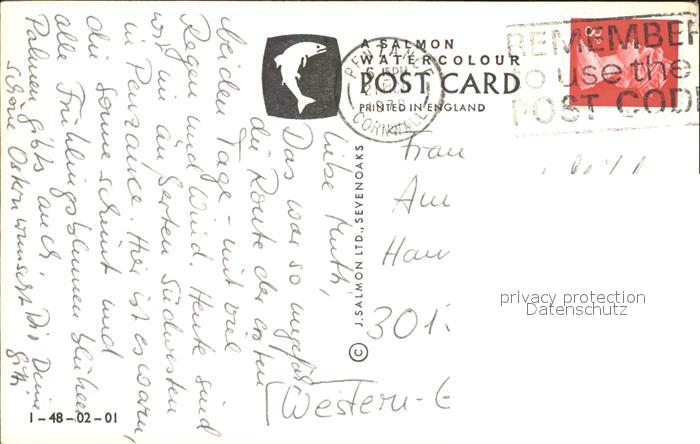 A SALMON
WATERCOLOUR
POST CARD
PRINTED IN ENGLAND
PENZANCE
1978
CORNWALL
REMEMBER
to use the
POST CODE
© J. SALMON LTD., SEVENOAKS
Liebe Ruth,
Das war so ungefähr
die Route der ersten
beiden Tage - mit viel
Regen und Wind. Heute sind
wir im äußersten Südwesten
in Penzance. Hier ist es warm,
die Sonne scheint und
alle Frühlingsblumen blühen
Palmen gibts auch. Dir
schöne Ostern wünscht Deine
Frau
Han
301
Western-G
privacy protection
Datenschutz
1-48-02-01